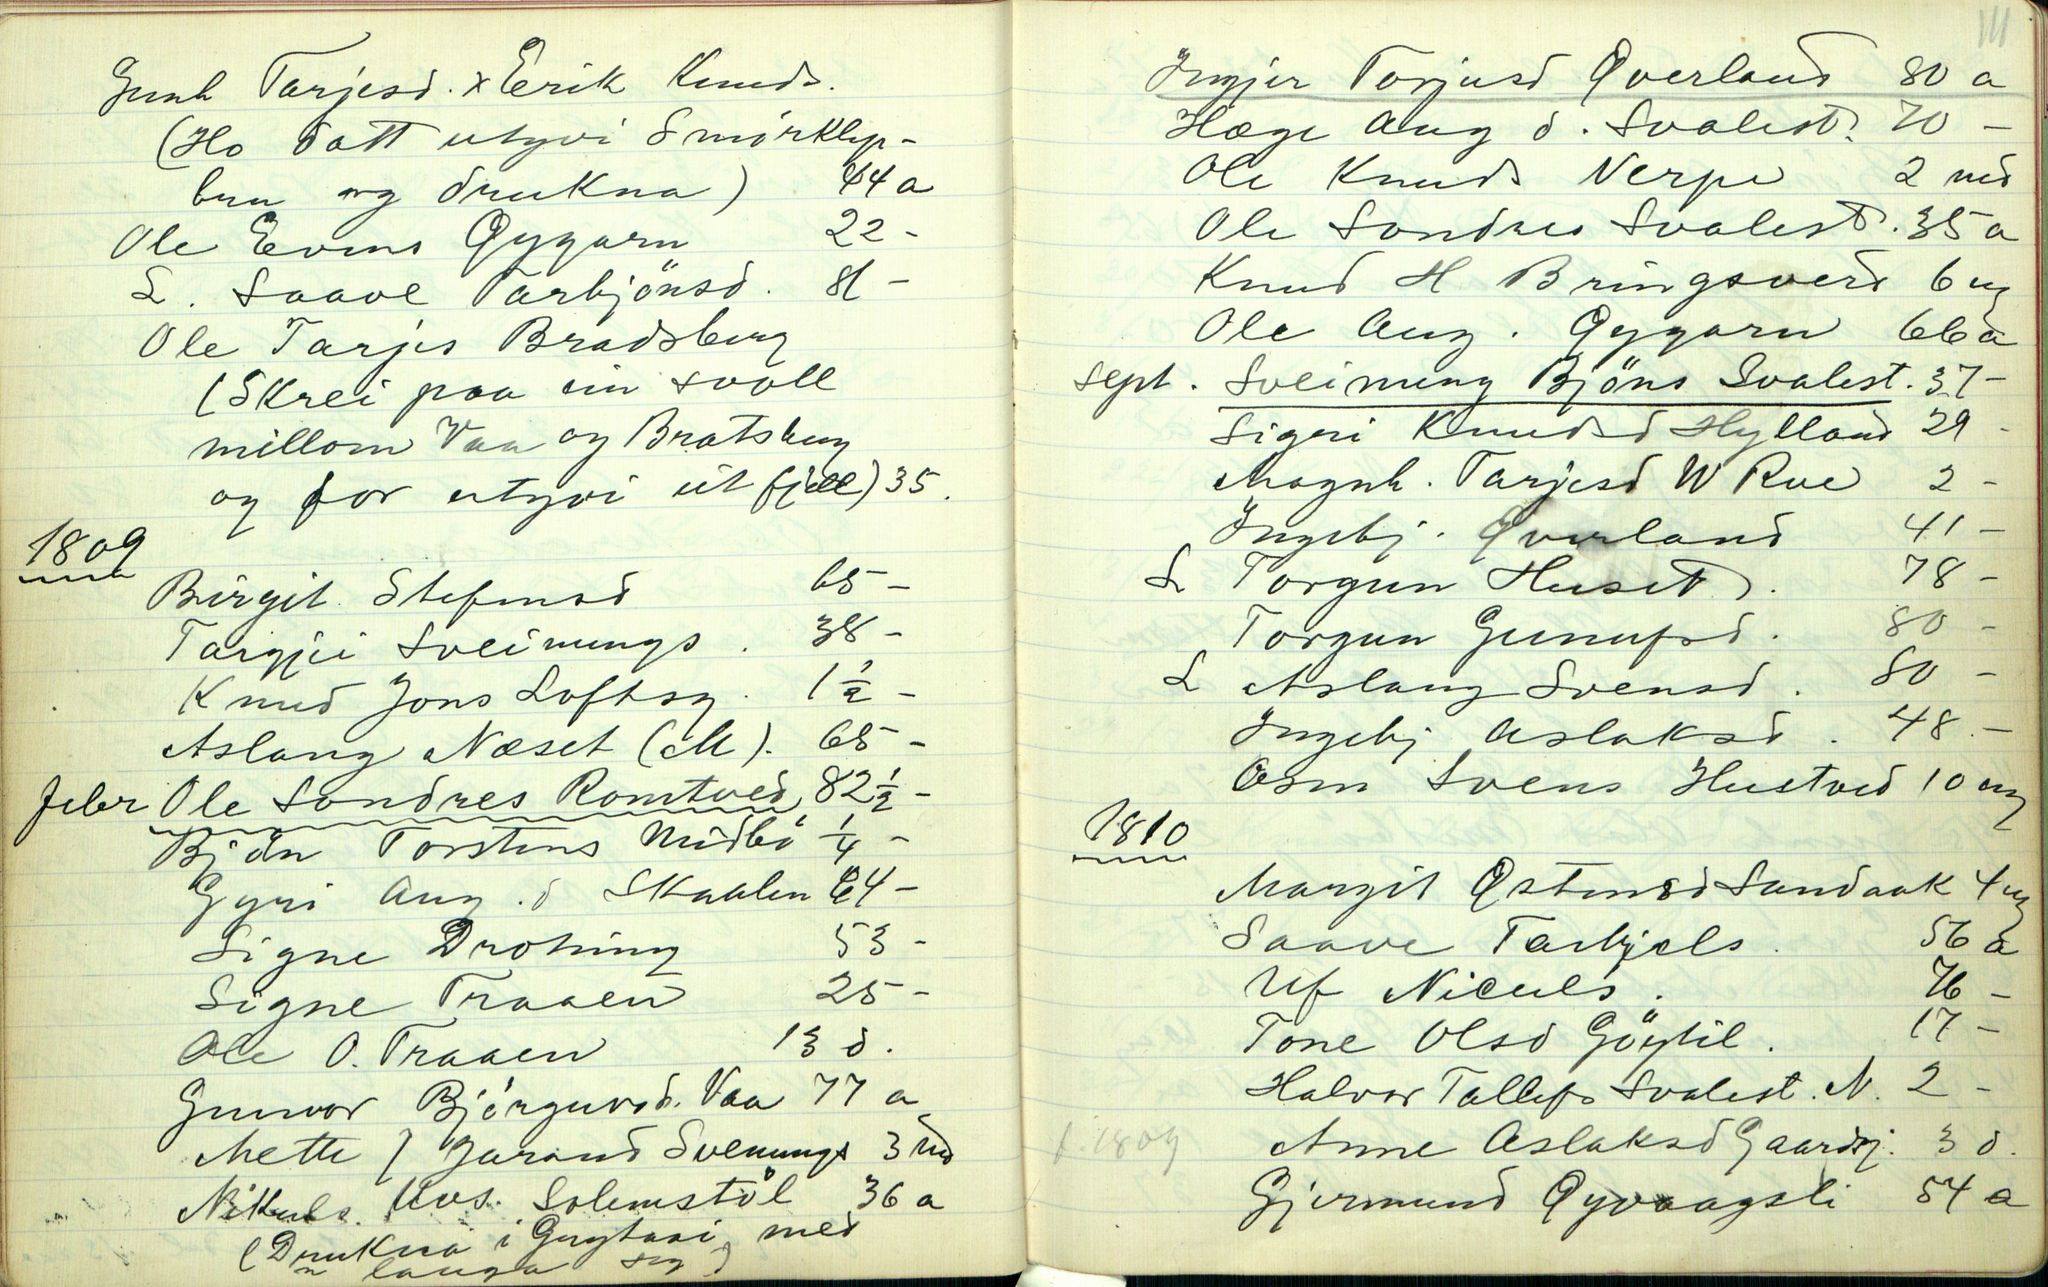 Gunh Tarjesd. x Erik Knuds.
(Ho datt utyvi Smörklep-
ben og drukna) 44 a
Ole Evens Øygarn 22 -
L. Saave Tarbjönsd. 81 -
Ole Tarjes Bradsberg
(Skrei paa ein svoll
millom Vaa og Bratsberg
og for utyvi eit fjell) 35.
1809
Birgit Stefensd 65 -
Targjei Sveinungs. 38 -
Knud Jons Loftsg. 1 1/2 -
Aslaug Næset (M). 65 -
febr Ole Sondres Romtved 82 1/2 -
Bjön Torstens Midbö 1/4 -
Gyri Aug.d Skaalen 64 -
Signe Drotning 53 -
Signe Traaen 25 -
Ole O. Traaen 13 d.
Gunvor Björguvsd. Vaa 77 a
Mette / Jarand Svenungs 3 md
Nikuls Uvs. Solemstöl 36 a
(Drukna i med
lauga seg)
111
Ingjer Torjusd Øverland 80 a
Hæge Aug d. Svalest. 70 -
Ole Knuds Nerpe 2 md
Ole Sondres Svalest. 35 a
Knud H Bringsverd 6 ug
Ole Aug. Øygarn 66 a
sept. Sveinung Bjöns Svalest. 37 -
Sigri Knudsd Hylland 29 -
Magnh. Tarjesd N Rue 2 -
Ingebj. Øverland 41 -
L Torgun Huset. 78 -
Torgun Gunufsd. 80 -
L Aslaug Svensd. 80 -
Ingebj Aslaksd. 48. -
Asm Svens Hustved 10 ug
1810
Margit Østensd Sandaak 4 ug
Saave Tarkjels. 56 a
Uf Niculs. 76 -
Tone Olsd Göytil. 17 -
Halvor Tallefs Svalest. N. 2 -
f. 1809 Anne Aslaksd Gaardsj. 3 d.
Gjermund Øyvaagsli 54 a